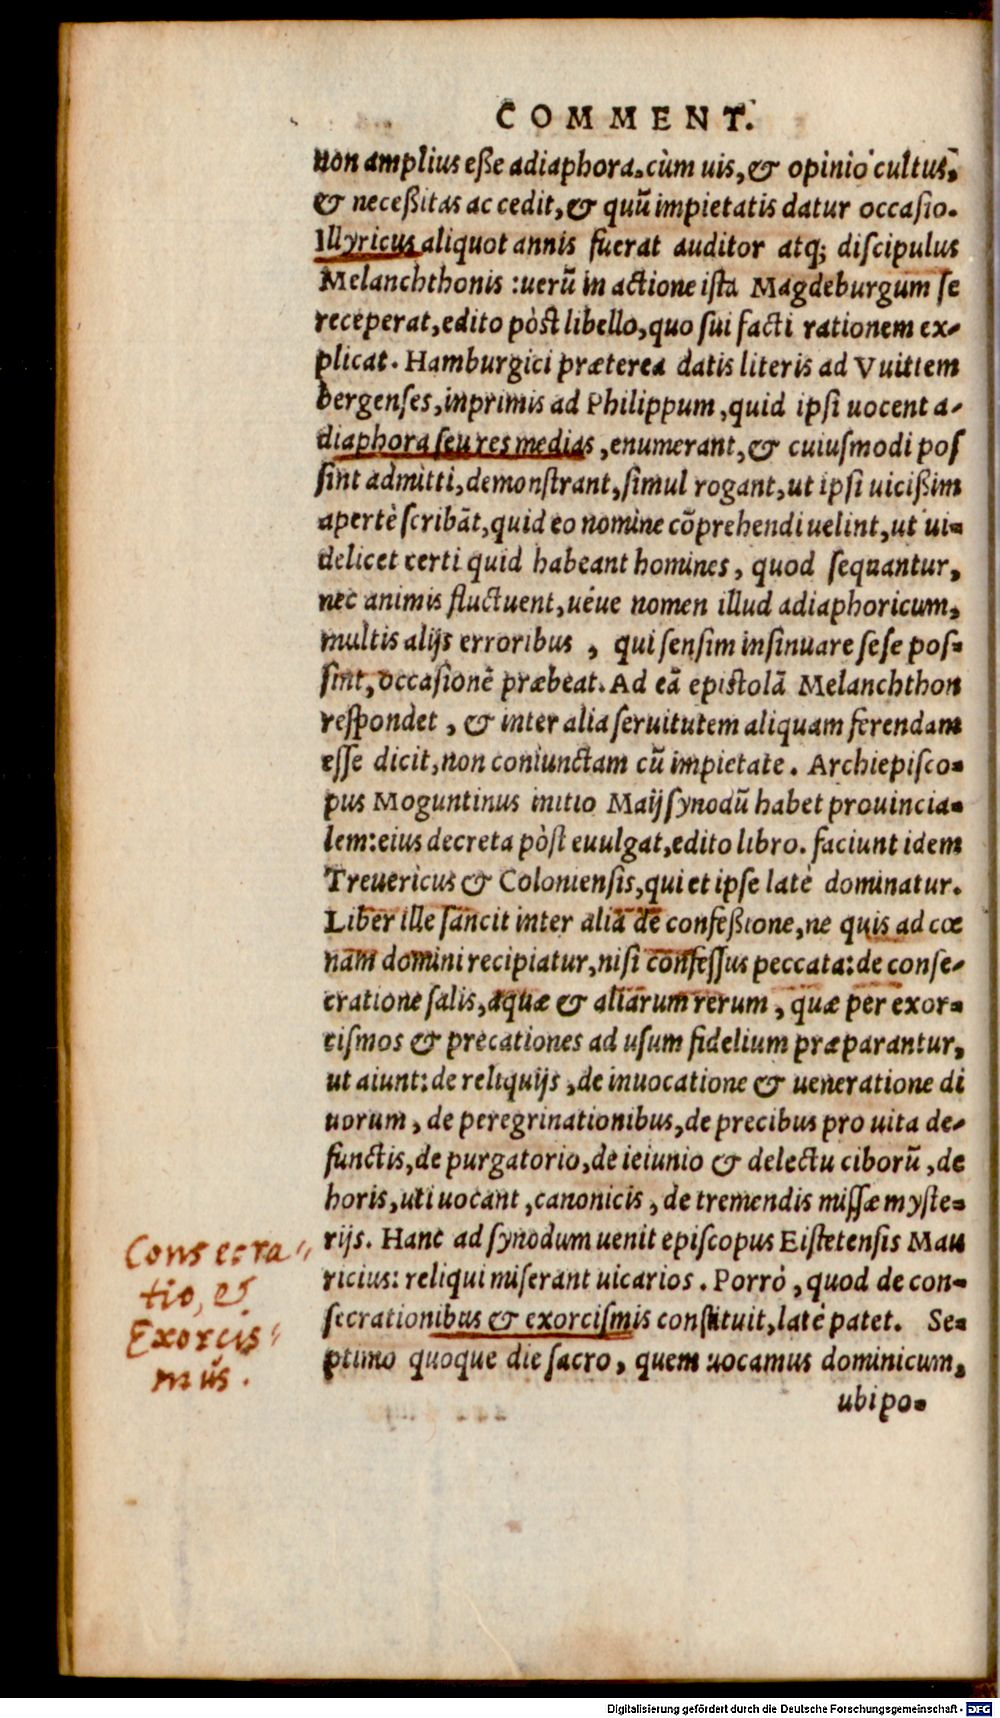 COMMENT.
non amplius eße adiaphora. cùm uis, & opinio cultus,
& neceßitas accedit, & quũ impietatis datur occasio.
Illyricus aliquot annis fuerat auditor atq; discipulus
Melanchthonis : uerũ in actione ista Magdeburgum se
receperat, edito pòst libello, quo sui facti rationem ex-
plicat. Hamburgici præterea datis literis ad Vuittem
bergenses, inprimis ad Philippum, quid ipsi uocent a-
diaphora seu res medias, enumerant, & cuiusmodi pos
sint admitti, demonstrant, simul rogant, ut ipsi uicißim
apertè scribãt, quid eo nomine cõprehendi uelint, ut ui-
delicet certi quid habeant homines, quod sequantur,
nec animis fluctuent, uéue nomen illud adiaphoricum,
multis alijs erroribus , qui sensim insinuare sese pos-
sint, occasionẽ præbeat. Ad eã epistolã Melanchthon
respondet , & inter alia seruitutem aliquam ferendam
esse dicit, non coniunctam cũ impietate. Archiepisco-
pus Moguntinus initio Maij synodũ habet prouincia-
lem: eius decreta pòst euulgat, edito libro. faciunt idem
Treuericus & Coloniensis, qui et ipse latè dominatur.
Liber ille sancit inter alia de confeßione, ne quis ad cœ
nam domini recipiatur, nisi confessus peccata: de conse-
cratione salis, aquæ & aliarum rerum, quæ per exor-
cismos & precationes ad usum fidelium præparantur,
ut aiunt: de reliquijs, de inuocatione & ueneratione di
uorum, de peregrinationibus, de precibus pro uita de-
functis, de purgatorio, de ieiunio & delectu ciborũ, de
horis, uti uocant, canonicis, de tremendis missæ myste-
rijs. Hanc ad synodum uenit episcopus Eistetensis Mau
ricius: reliqui miserant uicarios. Porrò, quod de con-
secrationibus & exorcismis constituit, latè patet. Se-
ptimo quoque die sacro, quem uocamus dominicum,
ubi po-
Consecra-
tio, &
Exorcis-
mus.
Digitalisierung gefördert durch die Deutsche Forschungsgemeinschaft - DFG